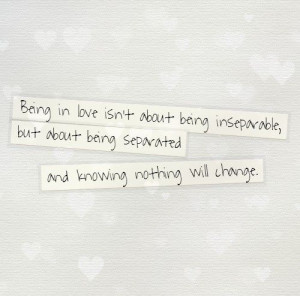 Being in love isn't about being inseparable,
but about being separated
and knowing nothing will change.